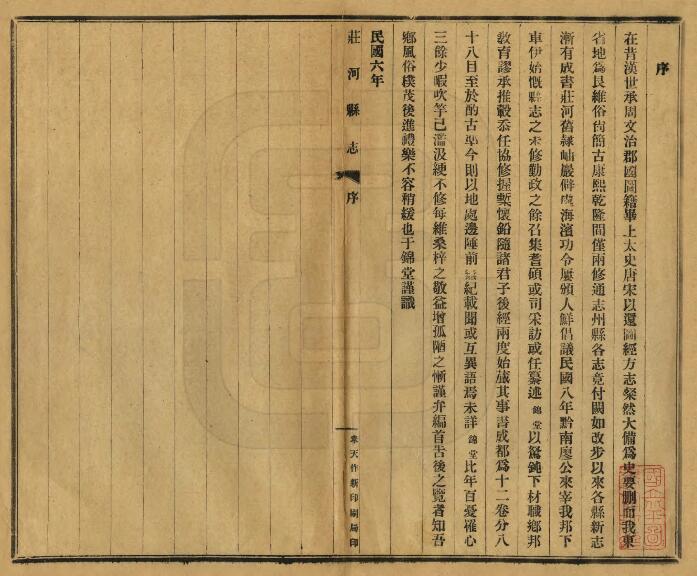 序
在昔漢世承周文治郡國圖籍畢上太史唐宋以還圖經方志粲然大備爲史要刪而我東
省地爲艮維俗尙簡古康熙乾隆間僅兩修通志州縣各志竟付闕如改步以來各縣新志
漸有成書莊河舊隸岫巖僻處海濱功令屢頒人鮮倡議民國八年黔南廖公來宰我邦下
車伊始慨縣志之未修勤政之餘召集耆碩或司采訪或任纂述錦堂以駑鈍下材職鄉邦
敎育謬承推轂忝任協修握槧懷鉛隨諸君子後經兩度始蕆其事書成都爲十二卷分八
十八目至於酌古凖今則以地處邊陲前紀載聞或互異語焉未詳錦堂比年百憂罹心
三餘少暇吹竽已濫汲綆不修每維桑梓之敬益增孤陋之慚謹弁編首吿後之覽者知吾
鄉風俗樸茂後進禮樂不容稍緩也于錦堂謹識
民國六年
莊河縣志 序
奉天作新印刷局印